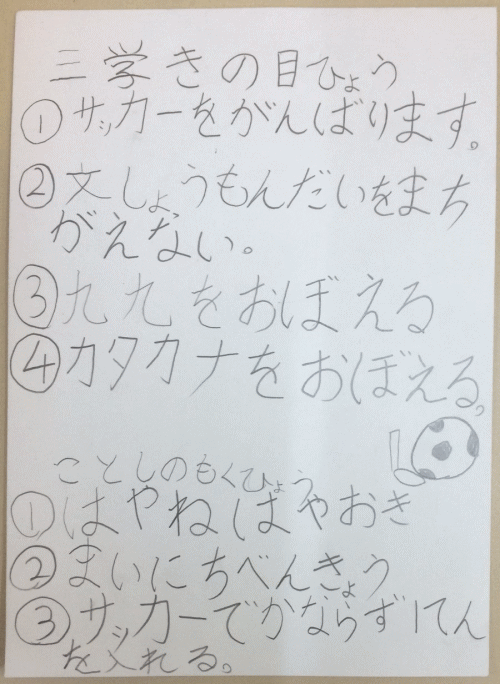 三学きの目ひょう
①サッカーをがんばります。
②文しょうもんだいをまち
がえない。
③九九をおぼえる
④カタカナをおぼえる。
ことしのもくひょう
①はやねはやおき
②まいにちべんきょう
③サッカーでかならず1てん
を入れる。